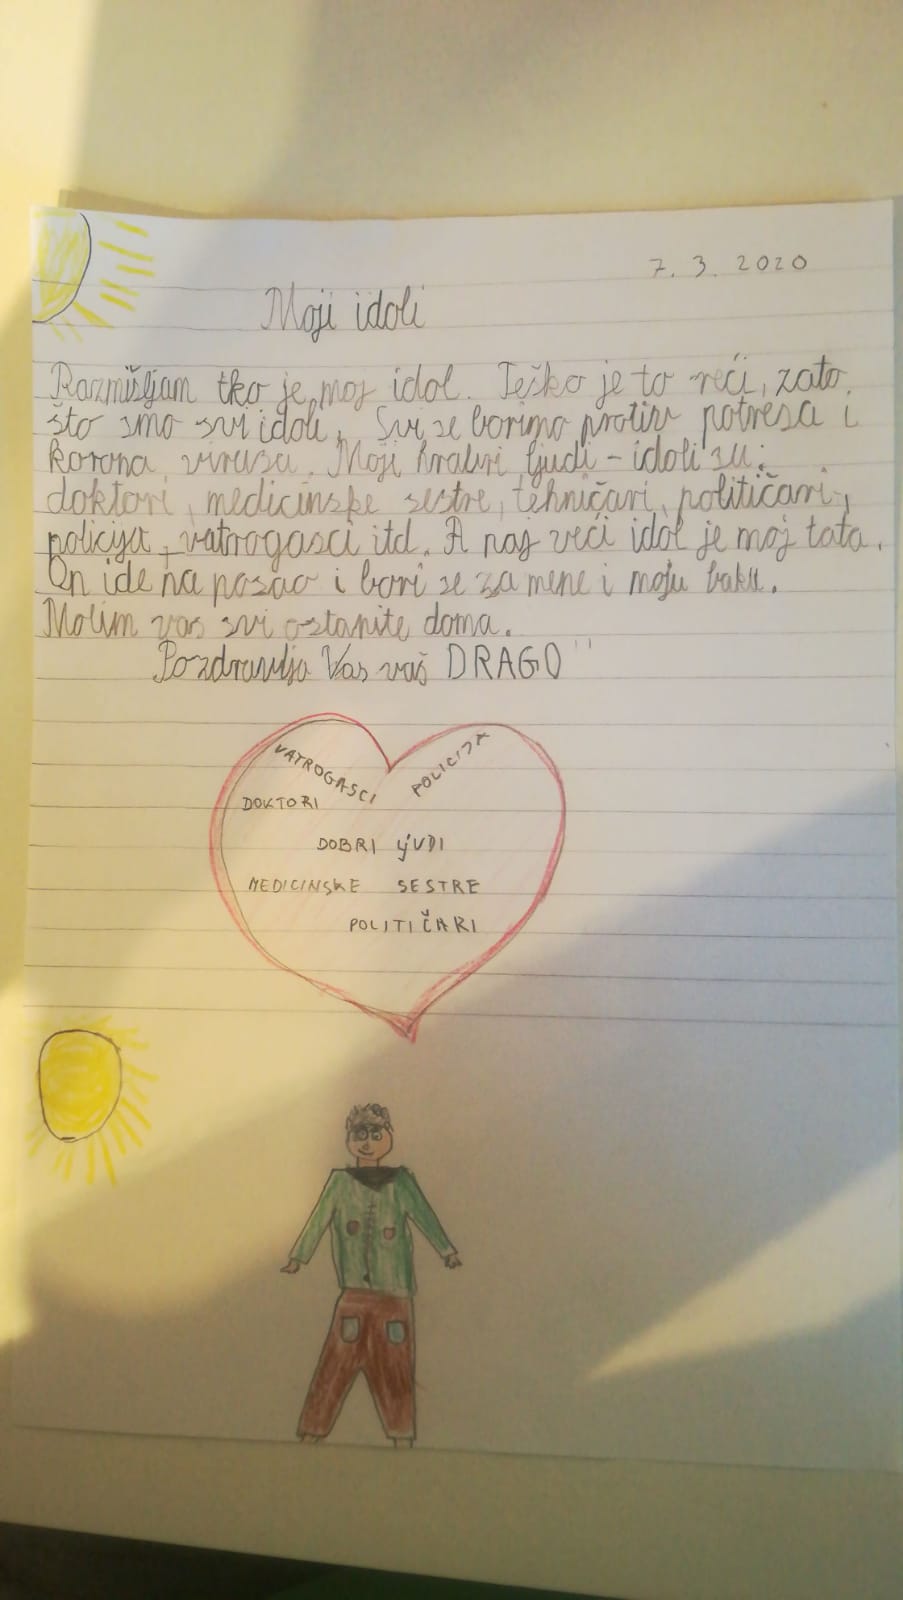 7. 3. 2020
Moji idoli
Razmišljam tko je moj idol. Teško je to reći, zato
što smo svi idoli. Svi se borimo protiv potresa i
korona virusa. Moji hrabri ljudi - idoli su:
doktori, medicinske sestre, tehničari, političari,
policija, vatrogasci itd. A naj veći idol je moj tata.
On ide na posao i bori se za mene i moju baku.
Molim vas svi ostanite doma.
Pozdravlja Vas vaš DRAGO"
VATROGASCI POLICIJA
DOKTORI
DOBRI LJUDI
MEDICINSKE SESTRE
POLITIČARI